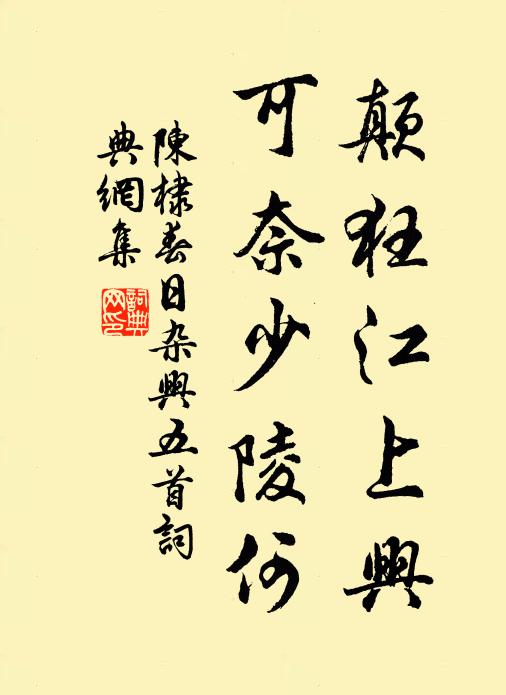 顛狂江上興
可奈少陵何
陳棣春日杂興五首詞
典網集
詞典
网印